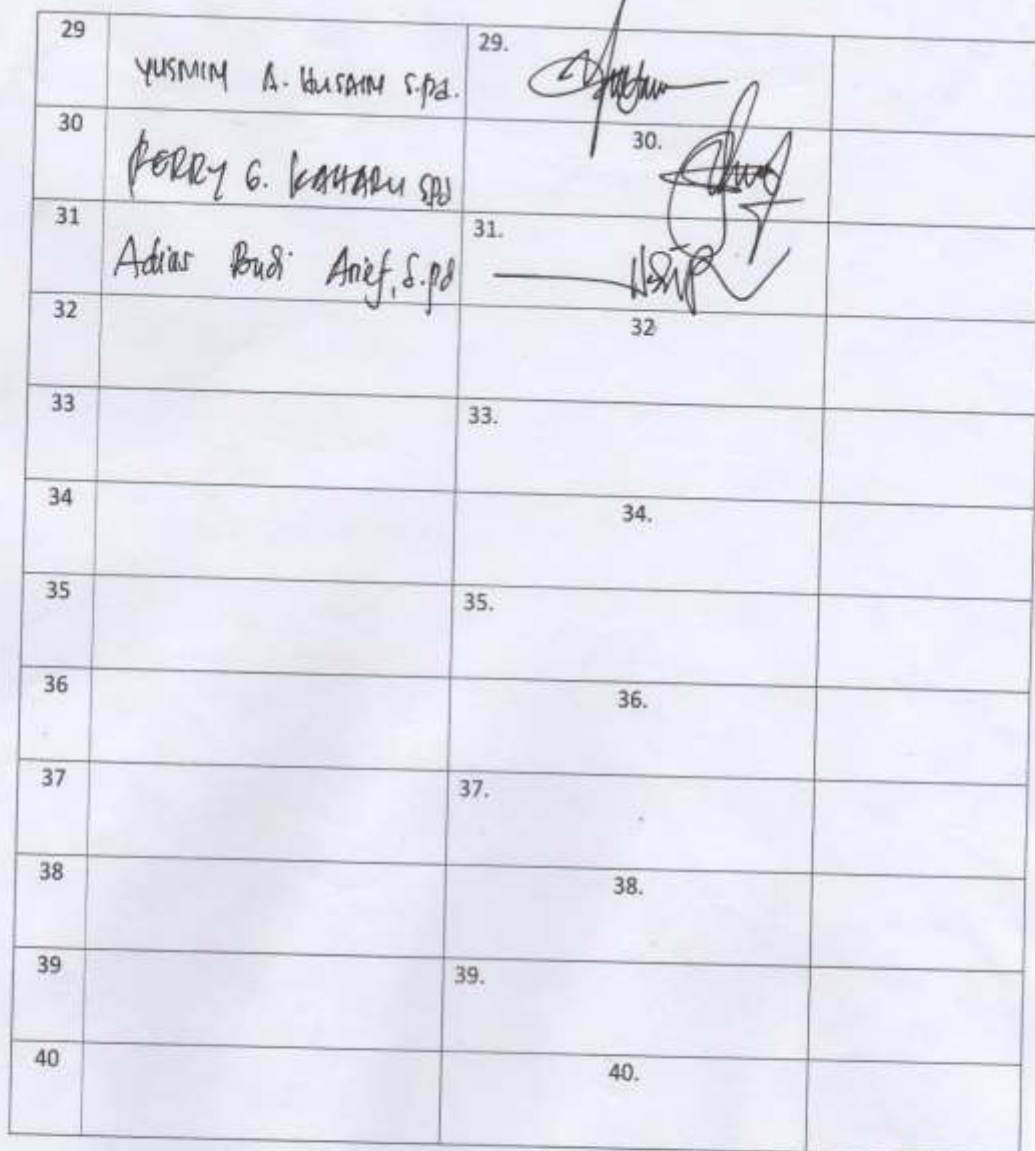 29 YUSMIN A. HUSAIN S.Pd. 29.
30 FERRY G. KAHARU SPd 30.
31 Adias Budi Arief, S.pd 31.
32 32
33 33.
34 34.
35 35.
36 36.
37 37.
38 38.
39 39.
40 40.